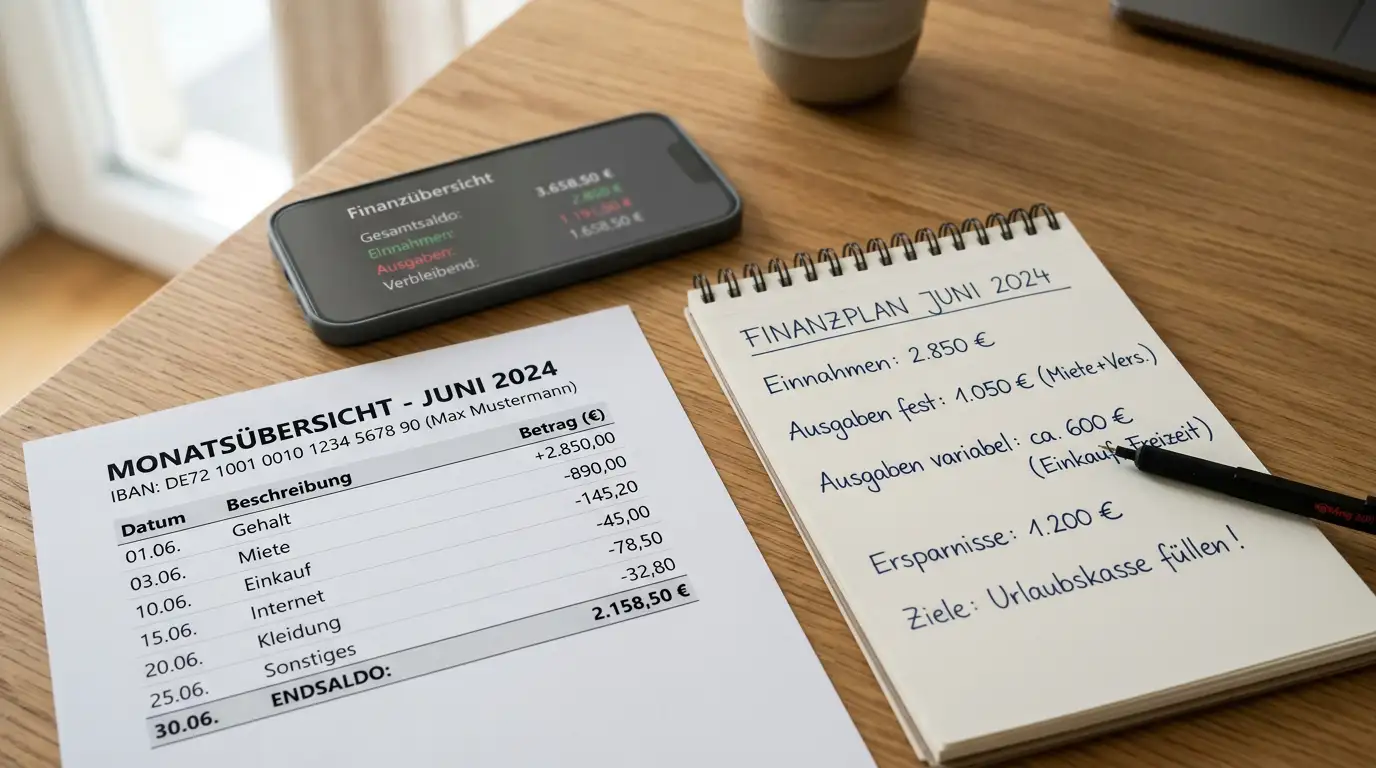 Finanzübersicht
Gesamtsaldo: 3.658,50 €
Einnahmen: 2.850 €
Ausgaben:
Verbleibend: 1.658,50 €
MONATSÜBERSICHT - JUNI 2024
IBAN: DE72 1001 0010 1234 5678 90 (Max Mustermann)
Datum Beschreibung Betrag (€)
01.06. Gehalt +2.850,00
03.06. Miete -890,00
10.06. Einkauf -145,20
15.06. Internet -45,00
20.06. Kleidung -78,50
25.06. Sonstiges -32,80
30.06. ENDSALDO: 2.158,50 €
FINANZPLAN JUNI 2024
Einnahmen: 2.850 €
Ausgaben fest: 1.050 € (Miete+Vers.)
Ausgaben variabel: ca. 600 €
(Einkauf, Freizeit)
Ersparnisse: 1.200 €
Ziele: Urlaubskasse füllen!